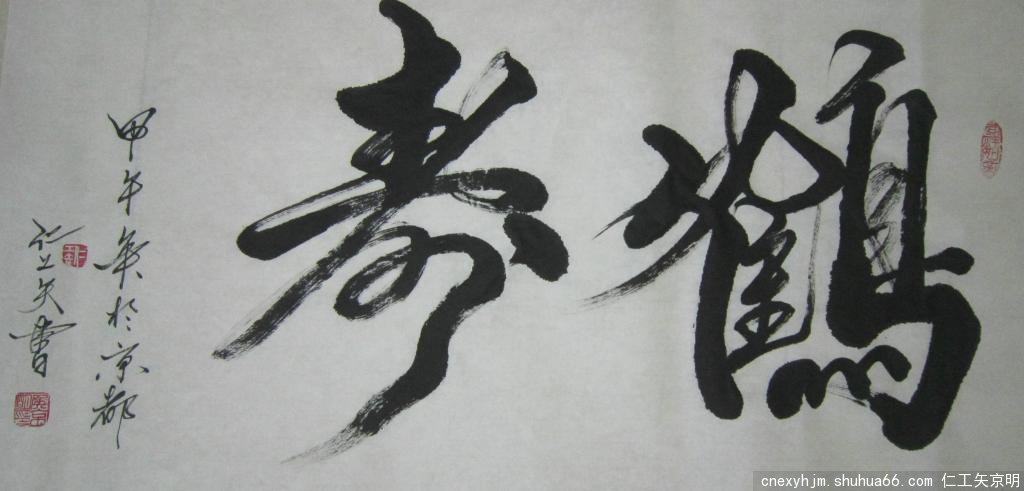 鹤寿
甲午年於京都
仁工矢書
cnexyhjm.shuhua66.com 仁工矢京明